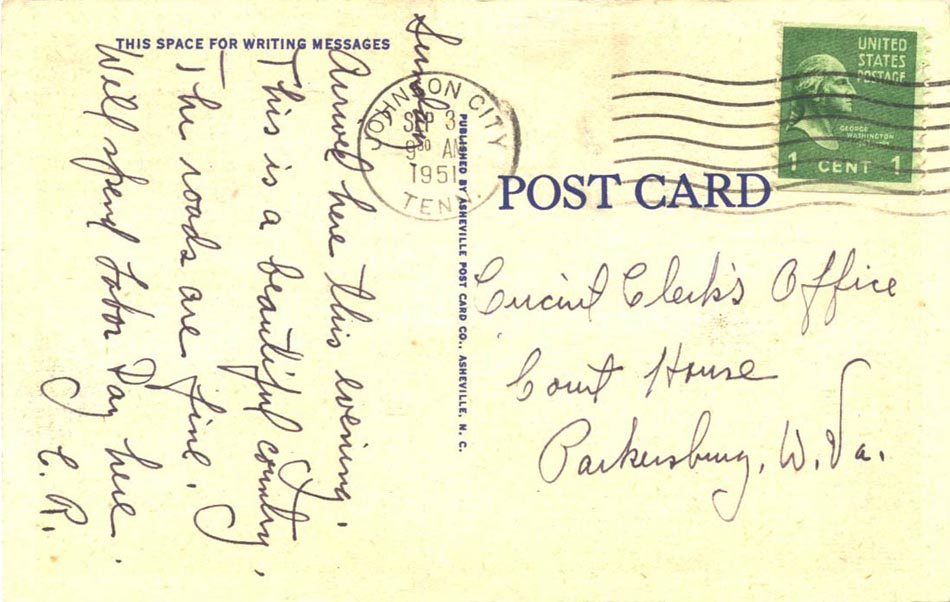 THIS SPACE FOR WRITING MESSAGES
Sunday
Arrived here this evening.
This is a beautiful country.
The roads are fine.
Will spend Labor Day here.
C. R.
PUBLISHED BY ASHEVILLE POST CARD CO., ASHEVILLE, N. C.
JOHNSON CITY
SEP 3
9 30 AM
1951
TENN.
UNITED
STATES
POSTAGE
GEORGE
WASHINGTON
1 CENT 1
POST CARD
Circuit Clerk's Office
Court House
Parkersburg, W. Va.